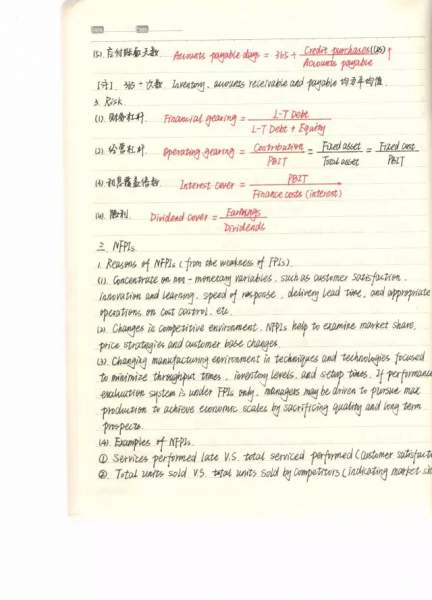 (5). 应付账款天数 Accounts payable days = 365 ÷ Credit purchases (COS) ↑ / Accounts payable
[注]. 365 ÷ 次数. Inventory, accounts receivable and payable 均为平均值
3. Risk.
(1). 财务杠杆. Financial gearing = L-T Debt / L-T Debt + Equity
(2). 经营杠杆. Operating gearing = Contribution / PBIT = Fixed asset / Total asset = Fixed cost / PBIT
(3). 利息覆盖倍数. Interest cover = PBIT / Finance costs (interest)
(4). 股利. Dividend cover = Earnings / Dividends
三. NFPIs.
1. Reasons of NFPIs (from the weakness of FPIs).
(1). Concentrate on non-monetary variables, such as customer satisfaction,
innovation and learning, speed of response, delivery lead time, and appropriate
operations on cost control, etc.
(2). Changes in competitive environment. NFPIs help to examine market share,
price strategies and customer base changes.
(3). Changing manufacturing environment in techniques and technologies focused
to minimize throughput times, inventory levels, and setup times. If performance
evaluation system is under FPIs only, managers may be driven to pursue max
production to achieve economic scales by sacrificing quality and long term
prospects.
(4). Examples of NFPIs.
① Services performed late V.S. total serviced performed (customer satisfact
② Total units sold V.S. total units sold by competitors (indicating market sh